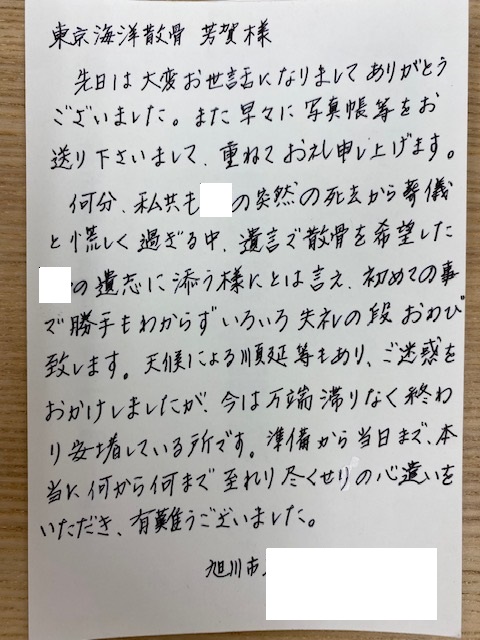 東京海洋散骨 芳賀様
先日は大変お世話になりましてありがとう
ございました。また早々に写真帳等をお
送り下さいまして、重ねてお礼申し上げます。
何分、私共も の突然の死去から葬儀
と慌しく過ぎる中、遺言で散骨を希望した
の遺志に添う様にとは言え、初めての事
で勝手もわからずいろいろ失礼の段おわび
致します。天候による順延等もあり、ご迷惑を
おかけしましたが、今は万端滞りなく終わ
り安堵している所です。準備から当日まで、本
当に何から何まで至れり尽くせりの心遣いを
いただき、有難うございました。
旭川市